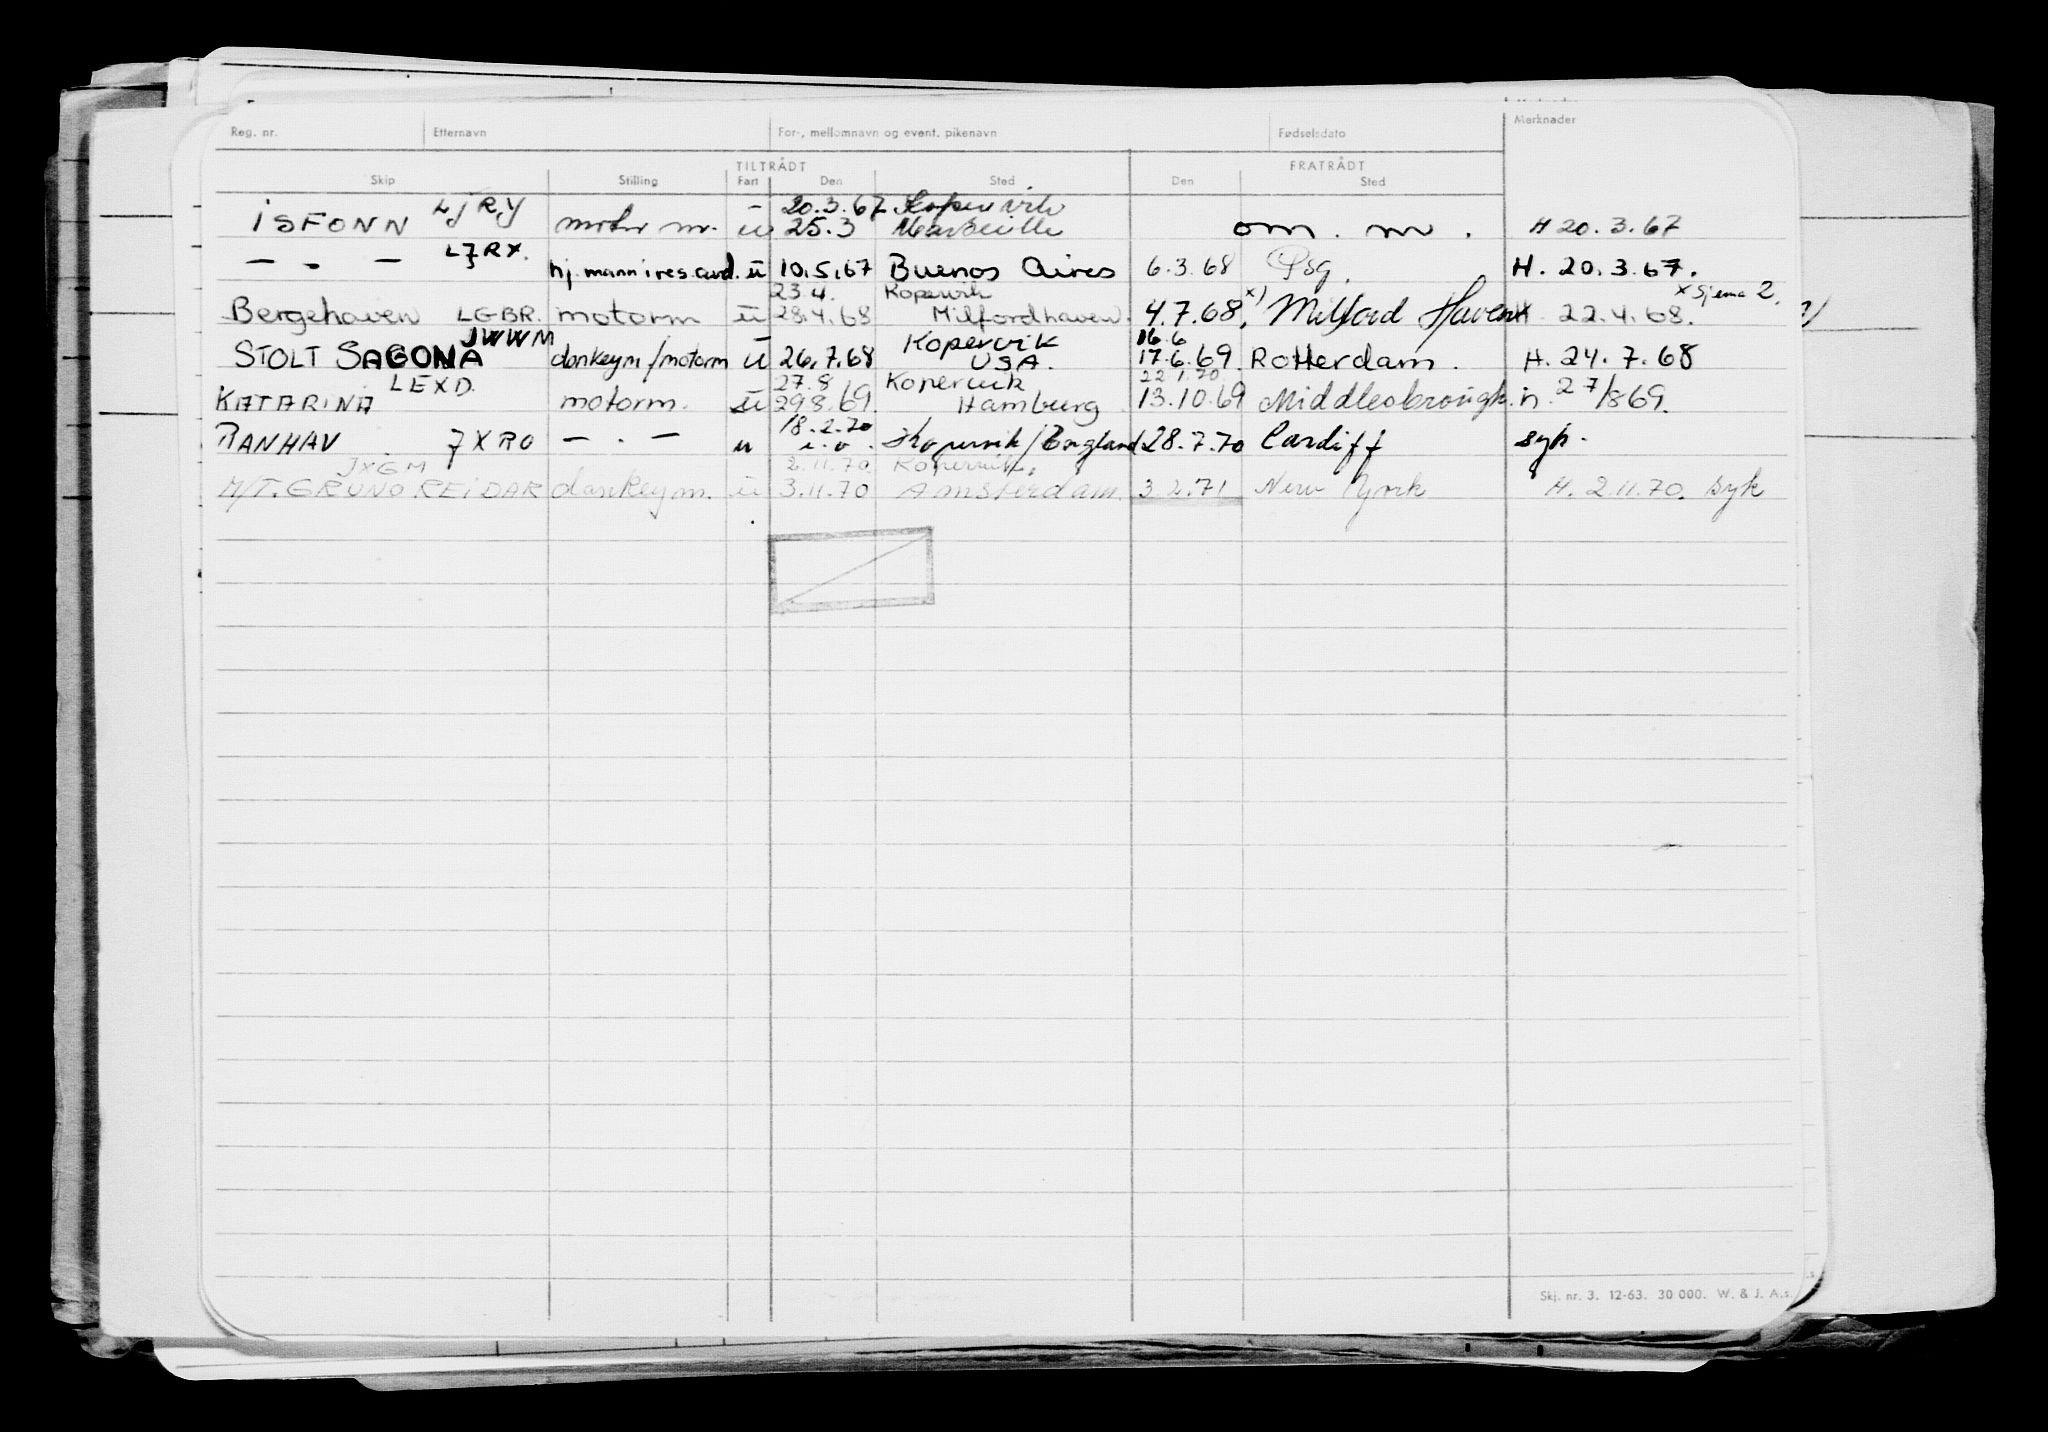 Reg. nr. Etternavn For-, mellomnavn og event. pikenavn Fødselsdato Merknader
TILTRÅDT FRATRÅDT
Skip Stilling Fart Den Sted Den Sted
LJRY - 20.3.67 Kopervik
ISFONN motor m. u 25.3 Marseille om. m. H 20.3.67
LJRX.
— . — hj. mann i res. avd. u 10.5.67 Buenos Aires 6.3.68 Psg. H. 20.3.67.
23.4. Kopervik x) x Sjema 2.
Bergehaven LGBR. motorm u 28.4.68 Milfordhaven. 4.7.68. Milford Haven H. 22.4.68.
JWWM - Kopervik 16.6
STOLT SAGONA donkeym/motorm u 26.7.68 USA. 17.6.69. Rotterdam. H. 24.7.68
LEXD. 27.8 Kopervik 22.1.70
KATARINA motorm. u 29.8.69. Hamburg 13.10.69 Middlesbrough. h. 27/869.
18.2.70
RANHAV. JXRO — . — u u.o. Kopervik/England 28.7.70 Cardiff syk.
JXGM 2.11.70 Kopervik.
M/T. GRUNO REIDAR donkeym. u 3.11.70 Amsterdam. 3.2.71 New York H. 2.11.70. syk
Skj. nr. 3. 12-63. 30 000. W. & J. A.s.